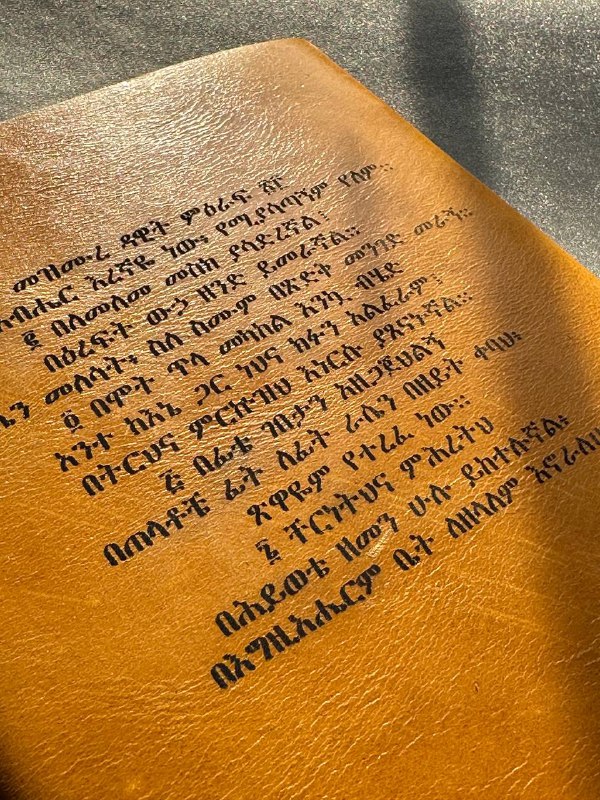 መዝሙረ ዳዊት ምዕራፍ ፳፫
እግዚአብሔር እረኛዬ ነው፥ የሚያሳጣኝም የለም።
፪ በለመለመ መስክ ያሳድረኛል፤
በዕረፍት ውኃ ዘንድ ይመራኛል።
መለሳት፥ ስለ ስሙም በጽድቅ መንገድ መራኝ።
፬ በሞት ጥላ መካከል እንኳ ብሄድ
አንተ ከእኔ ጋር ነህና ክፉን አልፈራም፤
በትርህና ምርኵዝህ እነርሱ ያጸናኑኛል።
፭ በፊቴ ገበታን አዘጋጀህልኝ
በጠላቶቼ ፊት ለፊት ራሴን በዘይት ቀባህ፥
ጽዋዬም የተረፈ ነው።
፮ ቸርነትህና ምሕረትህ
በሕይወቴ ዘመን ሁሉ ይከተሉኛል፥
በእግዚአብሔርም ቤት ለዘላለም እኖራለሁ